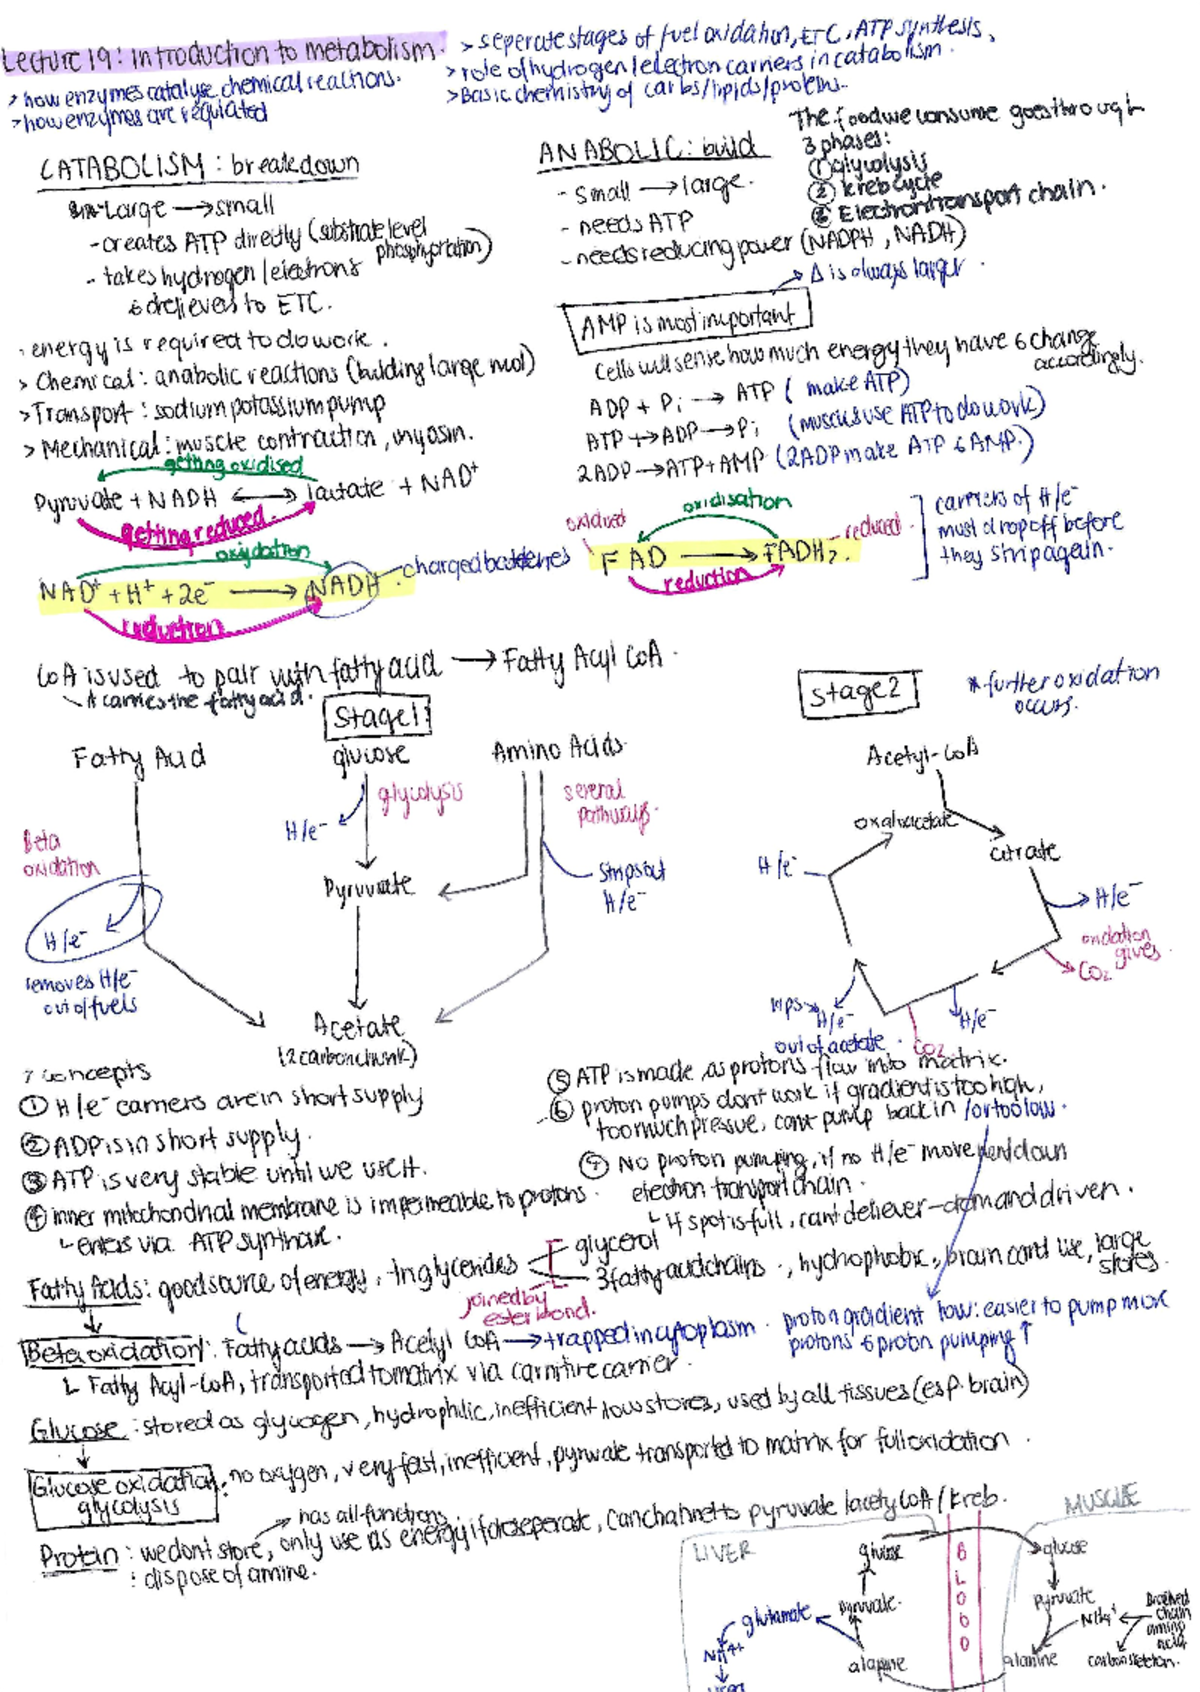 Lecture 19: Introduction to metabolism.
> how enzymes catalyse chemical reactions.
> how enzymes are regulated
> seperate stages of fuel oxidation, ETC, ATP synthesis.
> role of hydrogen/electron carriers in catabolism.
> Basic chemistry of carbs/lipids/proteins.
CATABOLISM: breakdown
Large → small
- creates ATP directly (substrate level phosphorylation)
- takes hydrogen/electrons
& delievers to ETC.
ANABOLIC: build
- small → large.
- needs ATP
- needs reducing power (NADPH, NADH)
→ Δ is always larger.
The food we consume goes through
3 phases:
① glycolysis
② kreb cycle
③ Electron transport chain.
· energy is required to do work.
> Chemical: anabolic reactions (building large mol)
> Transport: sodium potassium pump
> Mechanical: muscle contraction, myosin.
AMP is most important
Cells will sense how much energy they have & change
accordingly.
ADP + Pi → ATP (make ATP)
ATP → ADP → Pi (muscles use ATP to do work)
2ADP → ATP + AMP (2ADP make ATP & AMP.)
getting oxidised
Pyruvate + NADH ⟷ lactate + NAD⁺
getting reduced.
oxydation
NAD⁺ + H⁺ + 2e⁻ → NADH
charged batteries
reduction
oxidised
oxidisation
reduced
FAD → FADH₂.
reduction
carriers of H/e⁻
must drop off before
they strip again.
CoA is used to pair with fatty acid → Fatty Acyl CoA.
it carries the fatty acid.
Stage 1
Fatty Acid
glucose
Amino Acids
glycolysis
several
pathways.
H/e⁻
Beta
oxidation
Pyruvate
Strips out
H/e⁻
H/e⁻
removes H/e⁻
out of fuels
Acetate
(2 carbon chunk)
stage 2
* further oxidation
occurs.
Acetyl-CoA
oxaloacetate
citrate
H/e⁻
H/e⁻
oxidation
gives
CO₂
H/e⁻
H/e⁻
out of acetate.
CO₂
7 concepts
① H/e⁻ carriers are in short supply
② ADP is in short supply.
③ ATP is very stable until we use it.
④ inner mitochondrial membrane is impermeable to protons.
↳ enters via ATP synthase.
⑤ ATP is made as protons flow into matrix.
⑥ proton pumps dont work if gradient is too high,
too much pressue, cant pump back in /or too low.
⑦ No proton pumping, if no H/e⁻ movement down
electron transport chain.
↳ if spot is full, cant deliever - demand driven.
Fatty Acids: good source of energy, triglycerides
glycerol
3 fatty acid chains., hydrophobic, brain cant use, large
stores.
joined by
ester bond.
proton gradient low: easier to pump more
protons & proton pumping ↑
Beta oxidation: Fatty acids → Acetyl CoA → trapped in cytoplasm.
↳ Fatty Acyl-CoA, transported to matrix via carnitive carrier.
Glucose: stored as glycogen, hydrophilic, inefficient, low stores, used by all tissues (esp. brain)
Glucose oxidation:
glycolysis
no oxygen, very fast, inefficient, pyruvate transported to matrix for full oxidation.
has all functions
Protein: we dont store, only use as energy if desperate, can channel to pyruvate/acetyl CoA/Kreb.
: dispose of amine.
LIVER
BLOOD
MUSCLE
glucose
glucose
pyruvate.
pyruvate
glutamate
NH4+
NH4⁺
Branched
chain
amino
acid
alanine
alanine
carbon skeleton.
urea